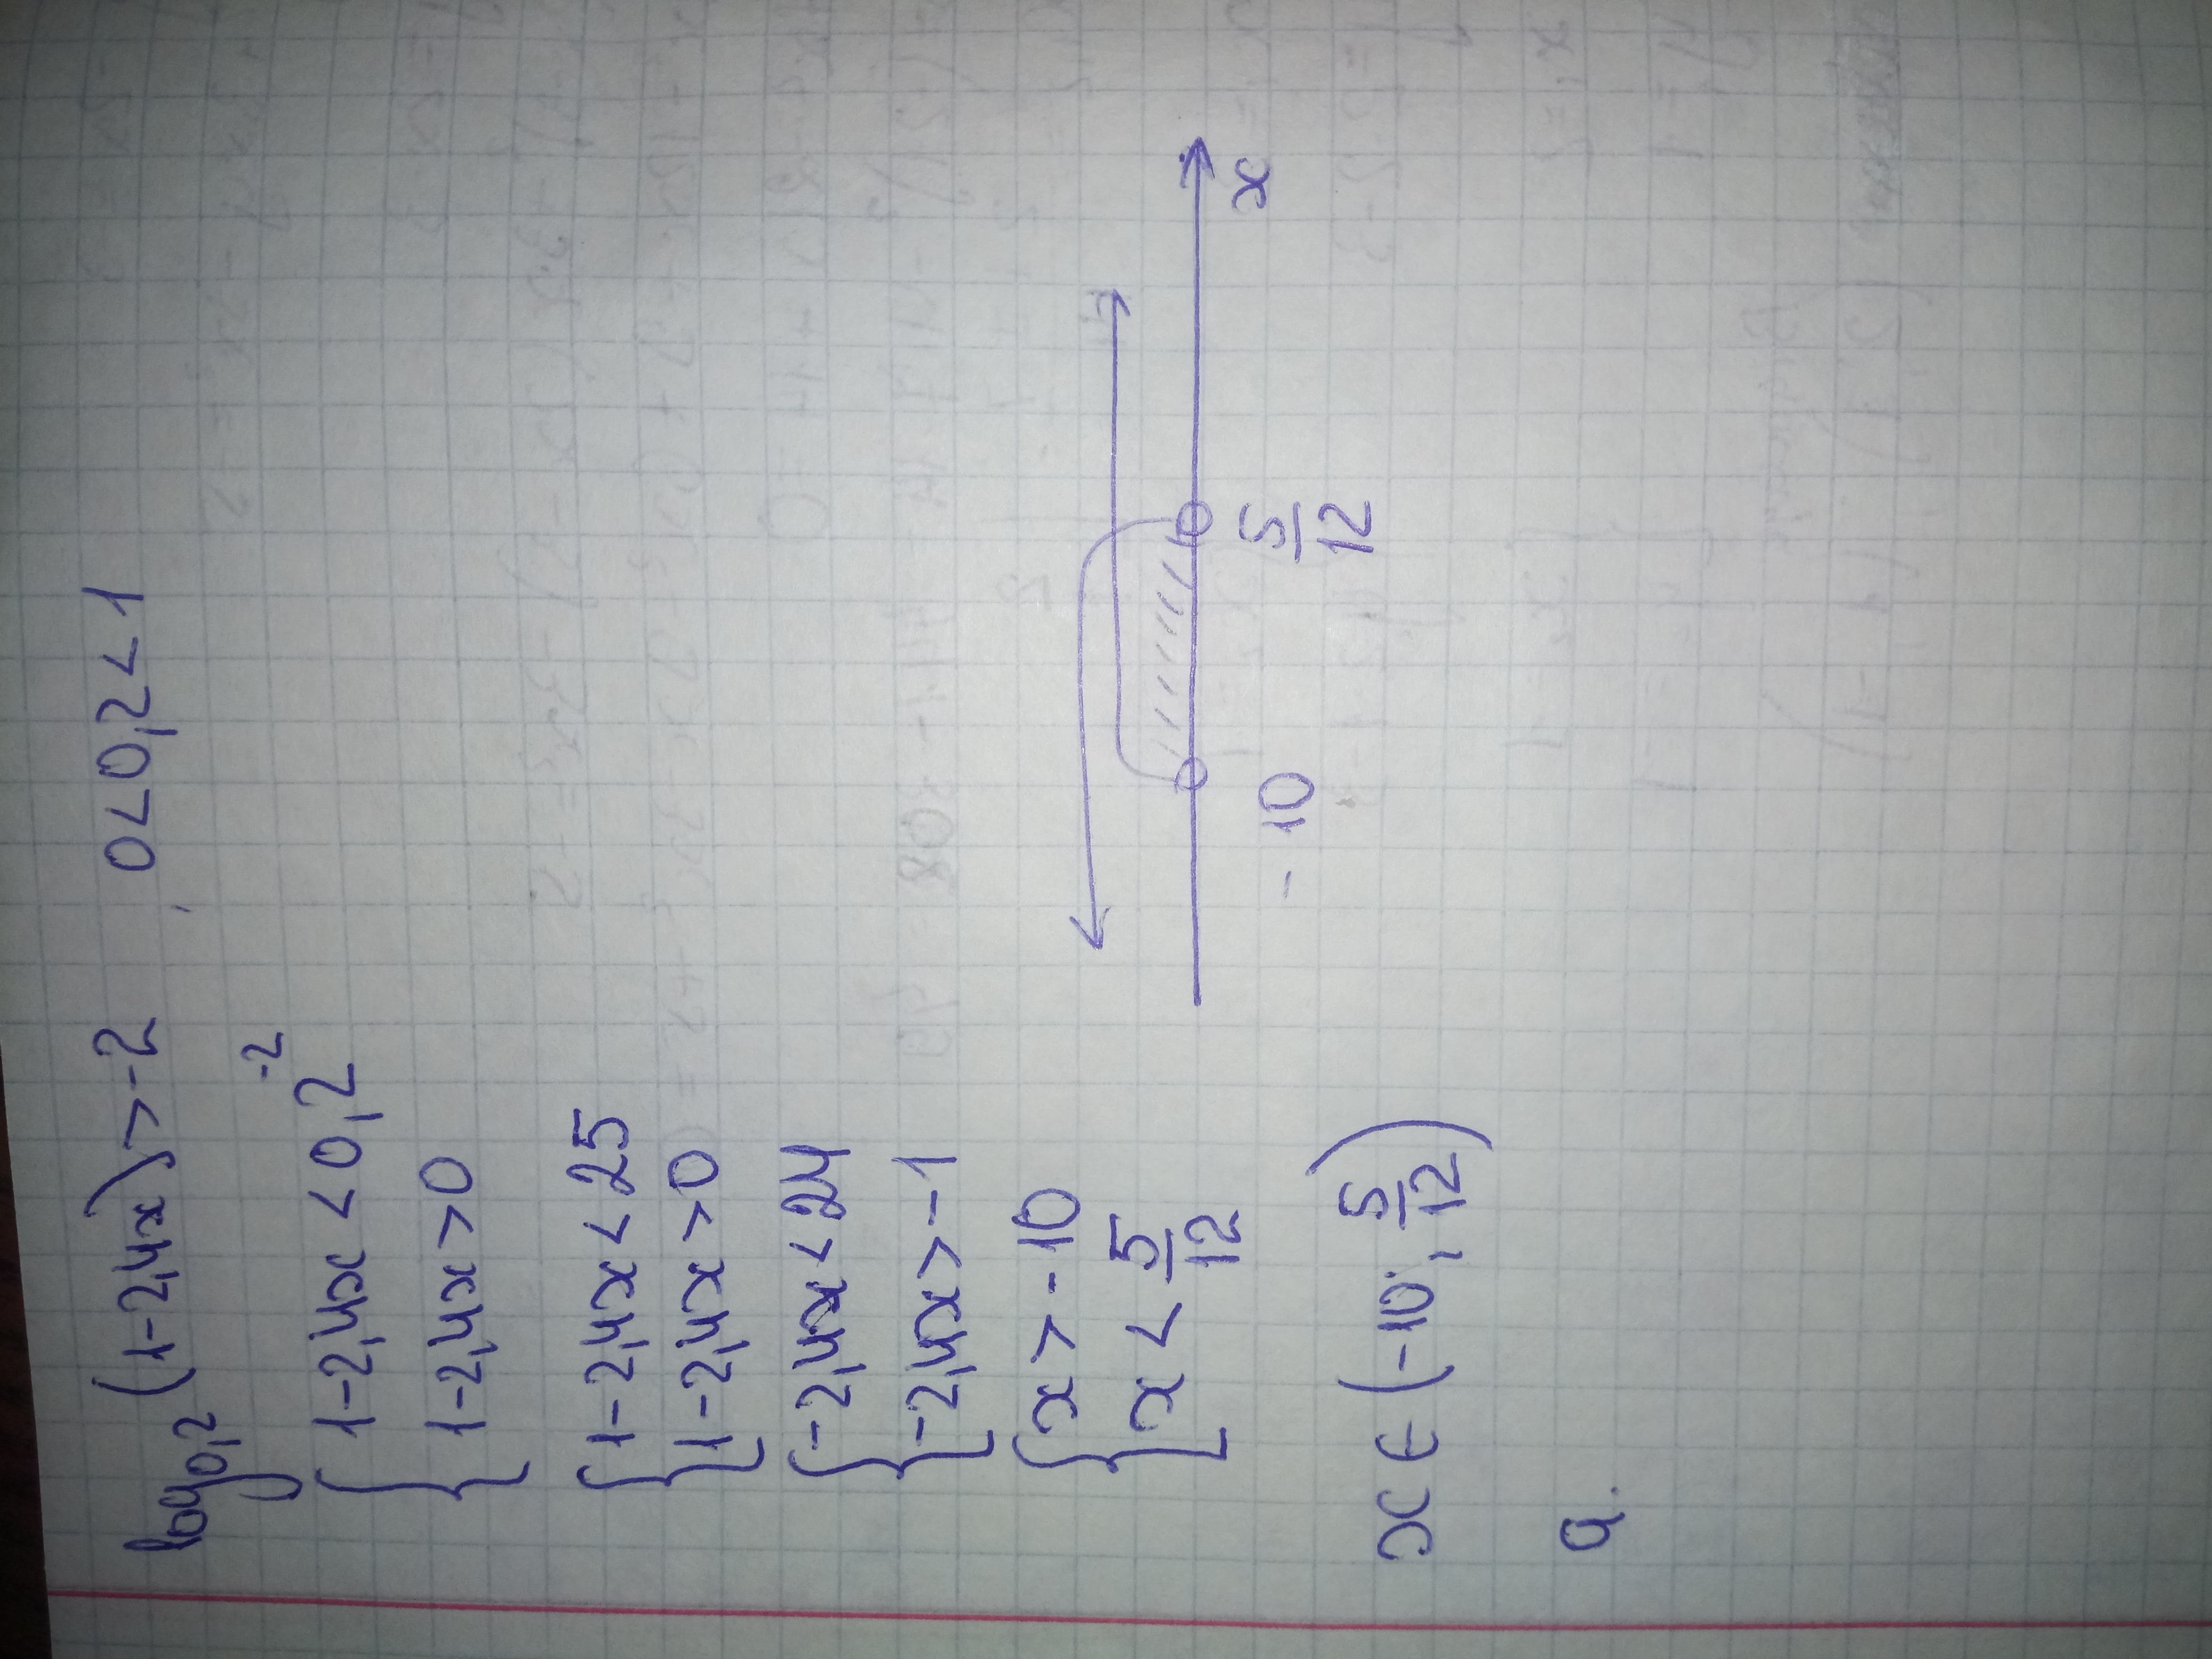 log₀,₂(1-2,4x)>-2 0<0,2<1
{1-2,4x<0,2⁻²
1-2,4x>0
{1-2,4x<25
1-2,4x>0
{-2,4x<24
-2,4x>-1
{x>-10
x<5/12
-10 5/12 x
x∈(-10; 5/12)
a.